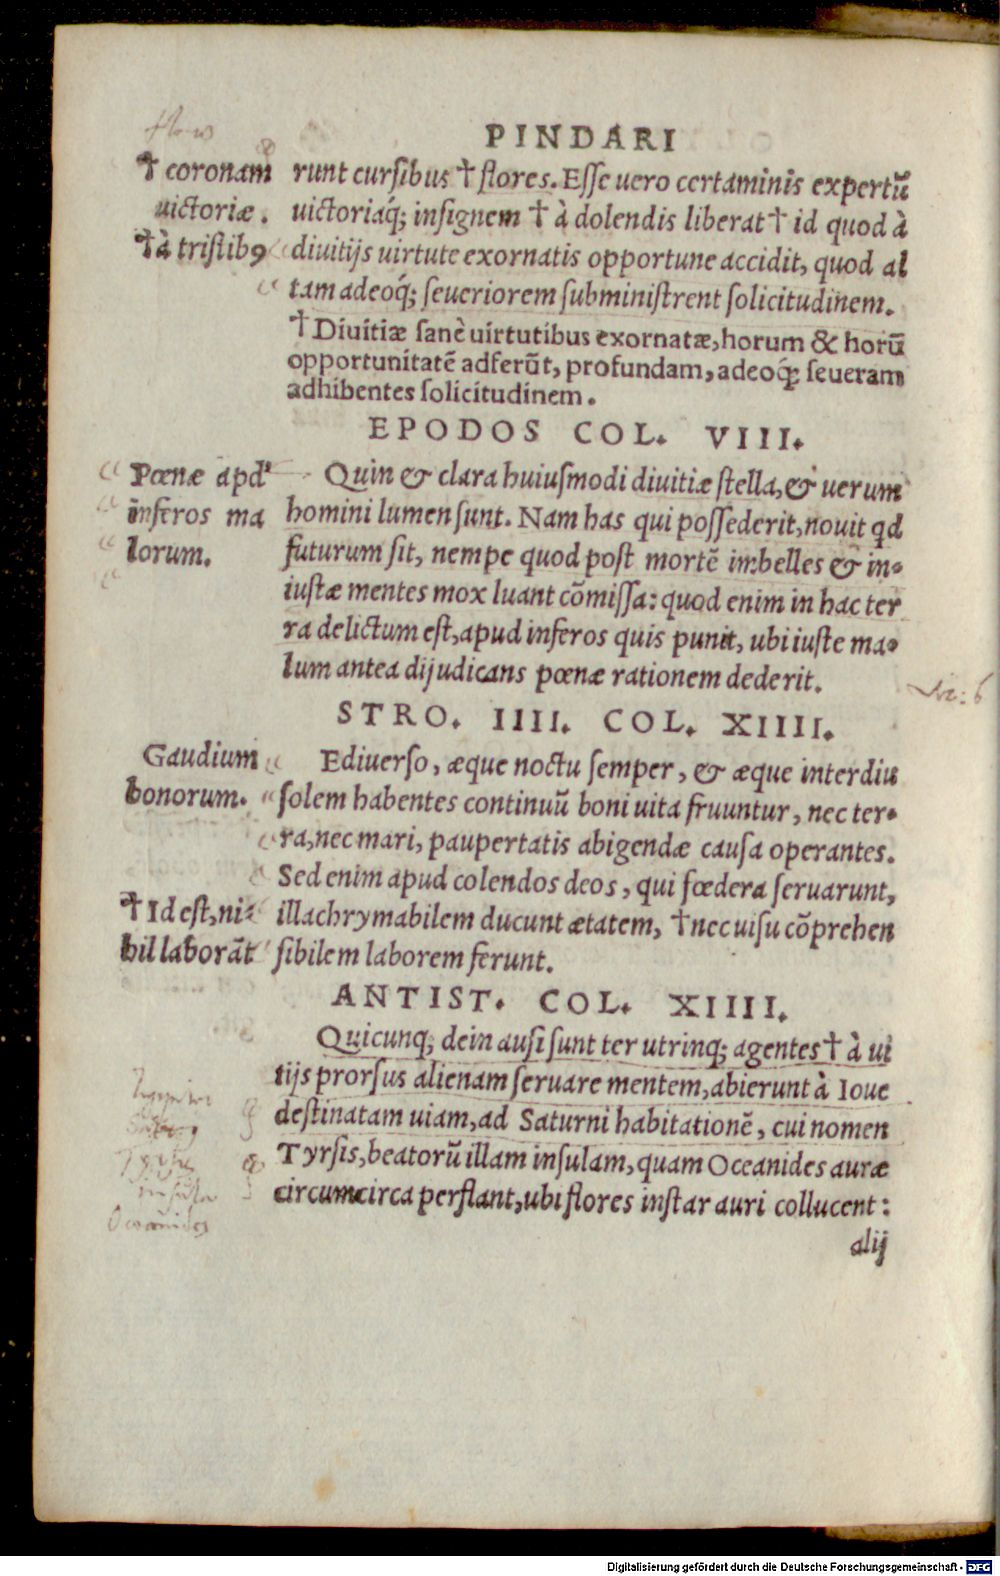 PINDARI
† coronam
uictoriæ.
† à tristib9
runt cursibus † flores. Esse uero certaminis expertũ
uictoriaq́; insignem † à dolendis liberat † id quod à
diuitijs uirtute exornatis opportune accidit, quod al
tam adeoq́; seueriorem subministrent solicitudinem.
† Diuitiæ sanè uirtutibus exornatæ, horum & horũ
opportunitatẽ adferũt, profundam, adeoq́; seueram
adhibentes solicitudinem.
EPODOS COL. VIII.
Pœnæ apd'
inferos ma
lorum.
Quin & clara huiusmodi diuitiæ stella, & uerum
homini lumen sunt. Nam has qui possederit, nouit qd
futurum sit, nempe quod post mortẽ imbelles & in-
iustæ mentes mox luant cõmissa: quod enim in hac ter
ra delictum est, apud inferos quis punit, ubi iuste ma-
lum antea dijudicans pœnæ rationem dederit.
STRO. IIII. COL. XIIII.
Gaudium
bonorum.
Ediuerso, æque noctu semper, & æque interdiu
solem habentes continuũ boni uita fruuntur, nec ter-
ra, nec mari, paupertatis abigendæ causa operantes.
Sed enim apud colendos deos, qui fœdera seruarunt,
† Id est, ni-
hil laborãt
illachrymabilem ducunt ætatem, † nec uisu cõprehen
sibilem laborem ferunt.
ANTIST. COL. XIIII.
Quicunq; dein ausi sunt ter utrinq; agentes † à ui
tijs prorsus alienam seruare mentem, abierunt à Ioue
destinatam uiam, ad Saturni habitationẽ, cui nomen
Tyrsis, beatorũ illam insulam, quam Oceanides auræ
circumcirca perflant, ubi flores instar auri collucent:
alij
insula
Oceanides
Digitalisierung gefördert durch die Deutsche Forschungsgemeinschaft - DFG